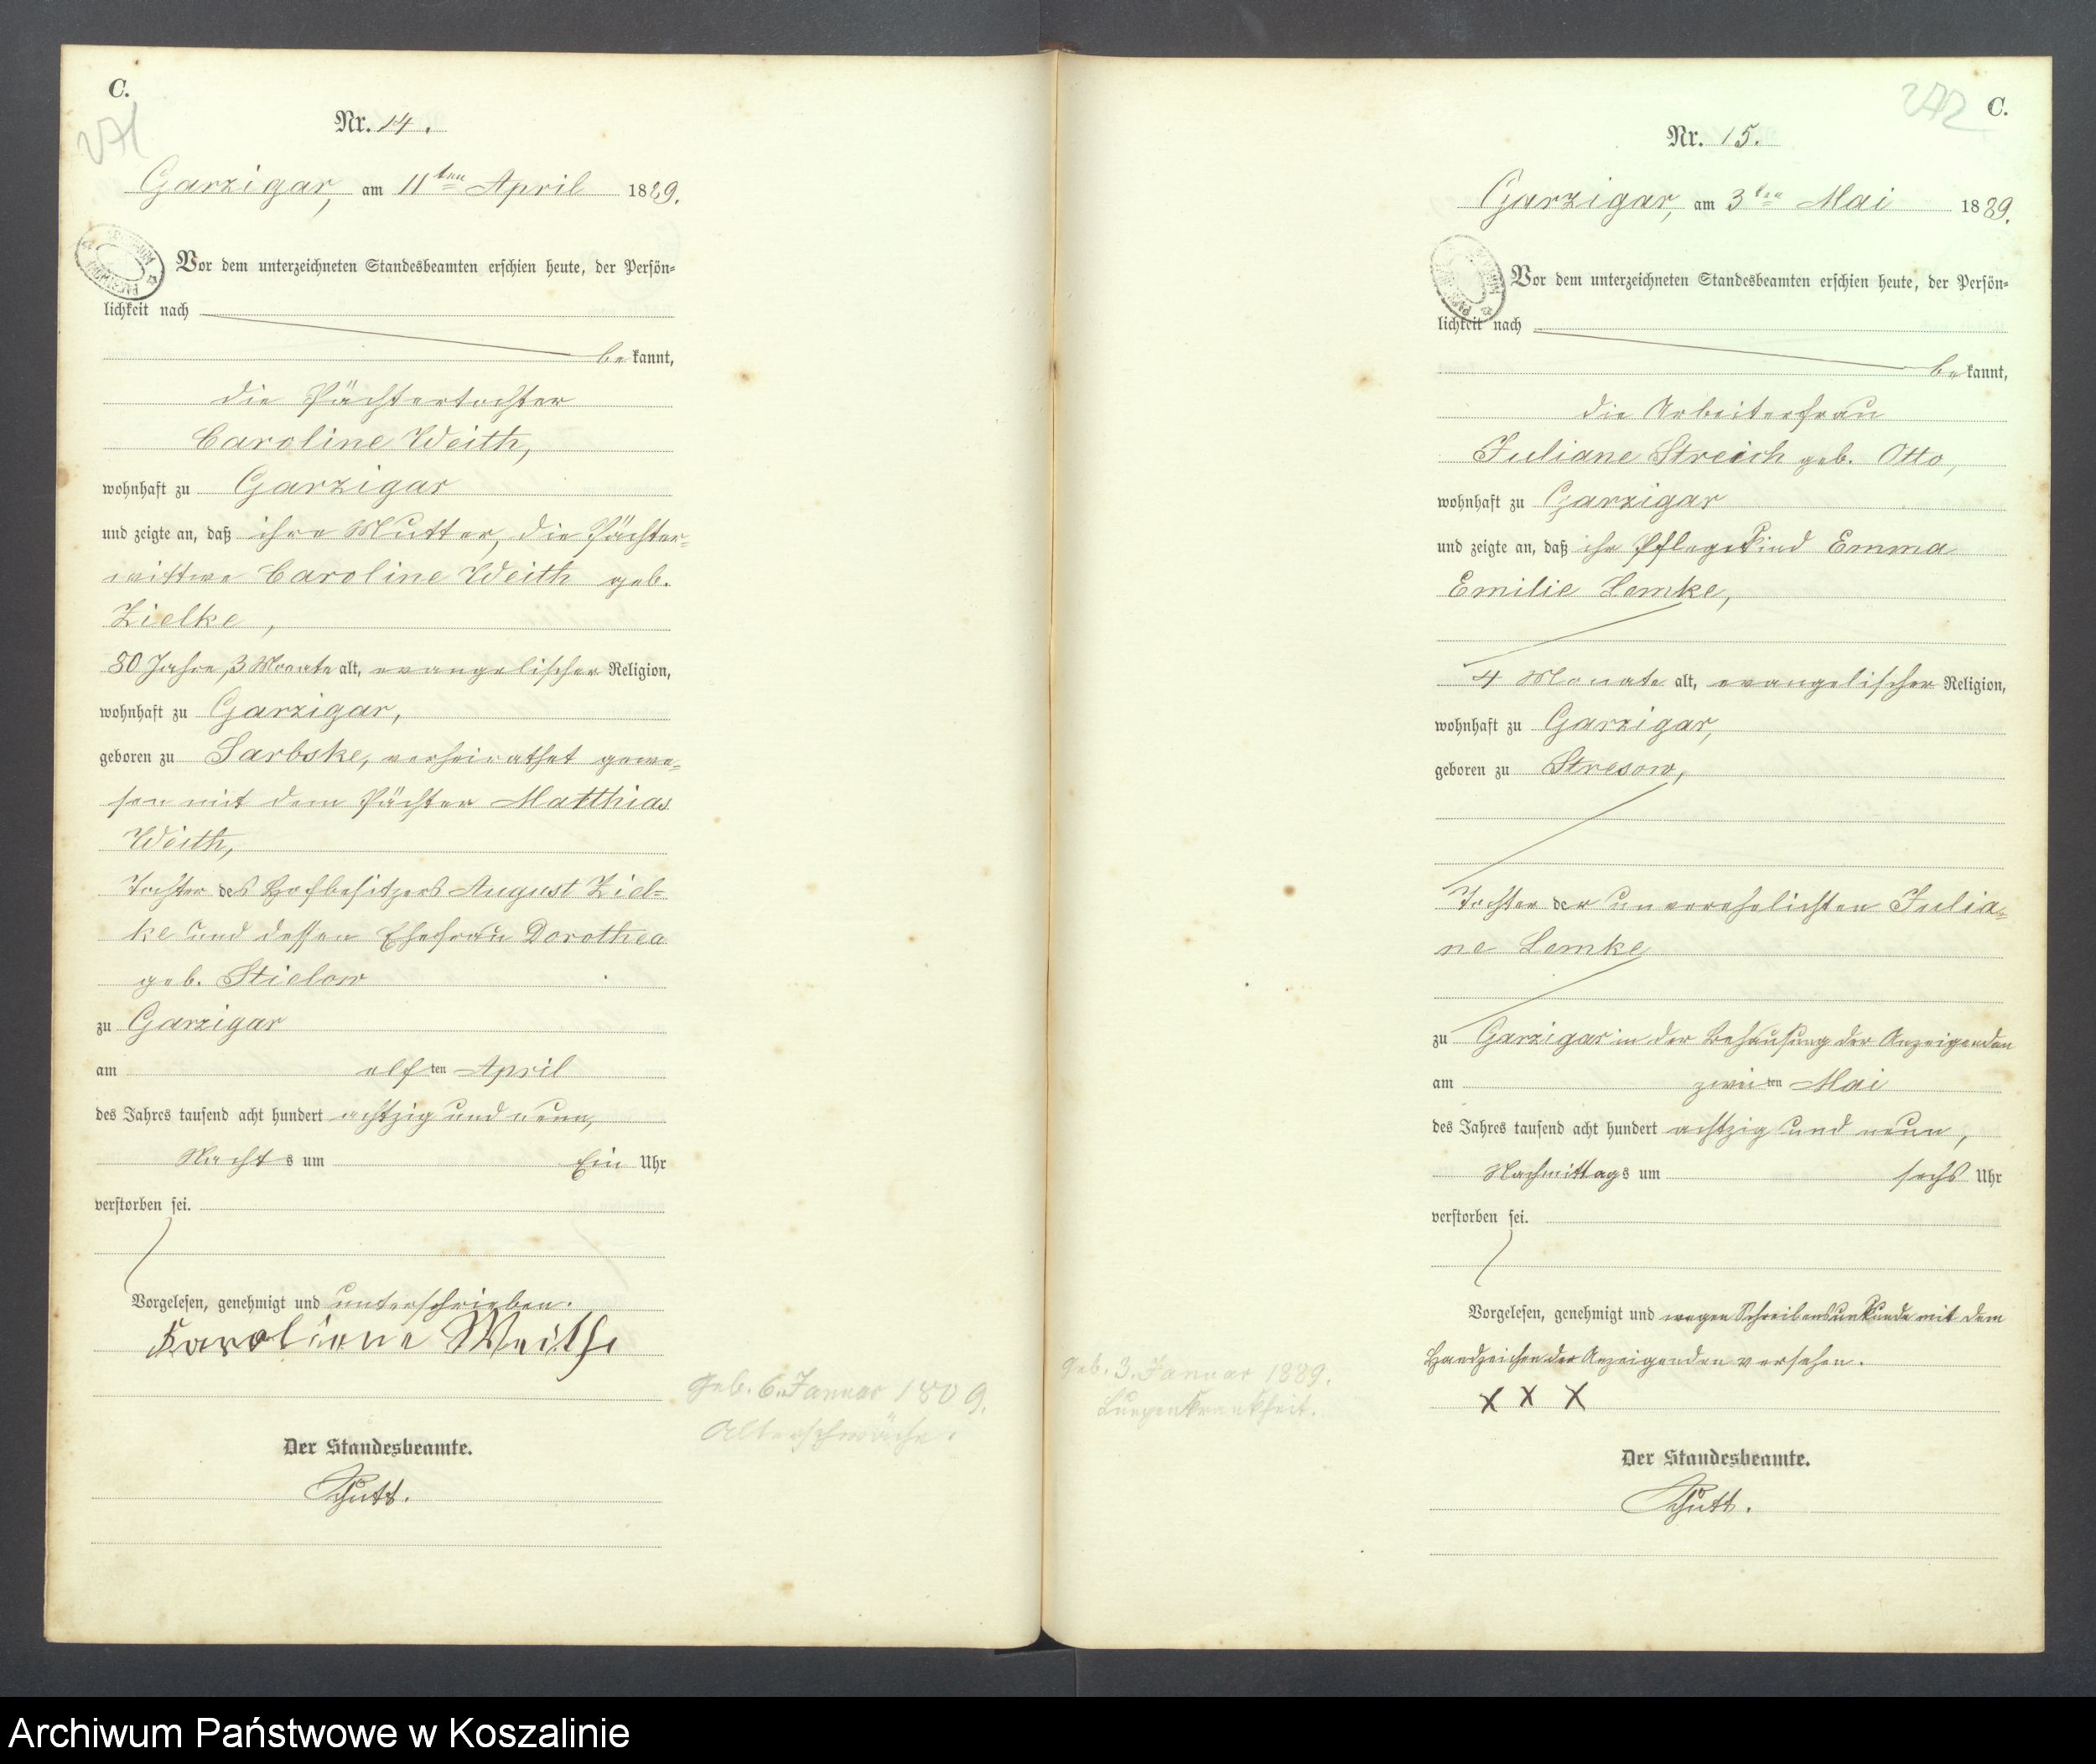 C.
271
Nr. 14.
Garzigar, am 11ten April 1889.
Vor dem unterzeichneten Standesbeamten erschien heute, der Persön-
lichkeit nach
bekannt,
die Pächtertochter
Caroline Weith,
wohnhaft zu Garzigar
und zeigte an, daß ihre Mutter, die Pächter-
wittwe Caroline Weith geb.
Zielke,
80 Jahre, 3 Monate alt, evangelischer Religion,
wohnhaft zu Garzigar,
geboren zu Sarbske, verheirathet gewe-
sen mit dem Pächter Matthias
Weith,
Tochter des Hofbesitzers August Ziel-
ke und dessen Ehefrau Dorothea
geb. Stielow
zu Garzigar
am elften April
des Jahres tausend acht hundert achtzig und neun,
Nachts um Ein Uhr
verstorben sei.
Vorgelesen, genehmigt und unterschrieben.
Karoliene Weith
Der Standesbeamte.
Schütt.
Geb. 6. Januar 1809.
Altersschwäche.
272
C.
Nr. 15.
Garzigar, am 3ten Mai 1889.
Vor dem unterzeichneten Standesbeamten erschien heute, der Persön-
lichkeit nach
bekannt,
die Arbeiterfrau
Juliane Streich geb. Otto,
wohnhaft zu Garzigar
und zeigte an, daß ihr Pflegekind Emma
Emilie Lemke,
4 Monate alt, evangelischer Religion,
wohnhaft zu Garzigar,
geboren zu Stresow,
Tochter der unverehelichten Julia-
ne Lemke
zu Garzigar in der Behausung der Anzeigenden
am zweiten Mai
des Jahres tausend acht hundert achtzig und neun,
Nachmittags um sechs Uhr
verstorben sei.
Vorgelesen, genehmigt und wegen Schreibensunkunde mit dem
Handzeichen der Anzeigenden versehen.
X X X
Der Standesbeamte.
Schütt.
Geb. 3. Januar 1889.
Lungenkrankheit.
Archiwum Państwowe w Koszalinie